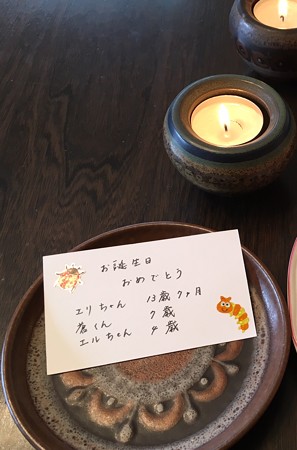 お誕生日
おめでとう
エリちゃん 13歳7ヶ月
嵐くん 7歳
エルちゃん 4歳